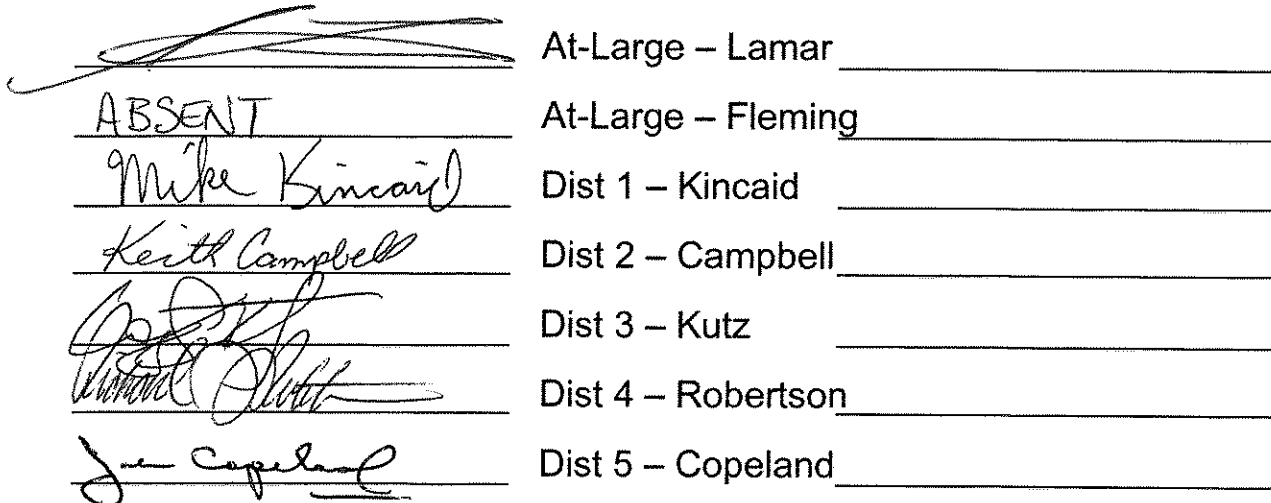 At-Large – Lamar
ABSENT At-Large – Fleming
Mike Kincaid Dist 1 – Kincaid
Keith Campbell Dist 2 – Campbell
Dist 3 – Kutz
Dist 4 – Robertson
Copeland Dist 5 – Copeland